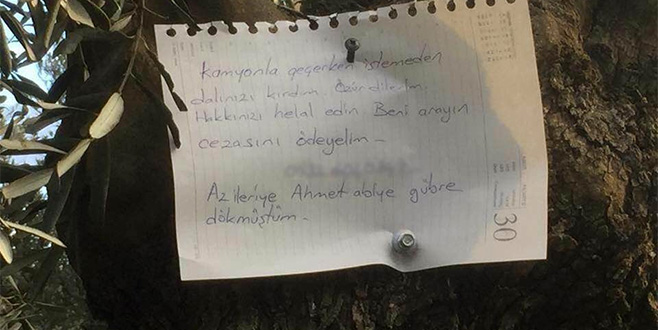 Kamyonla geçerken istemeden
dalınızı kırdım. Özür dilerim.
Hakkınızı helal edin. Beni arayın
cezasını ödeyelim -
Az ileriye Ahmet abiye gübre
dökmüştüm -
30